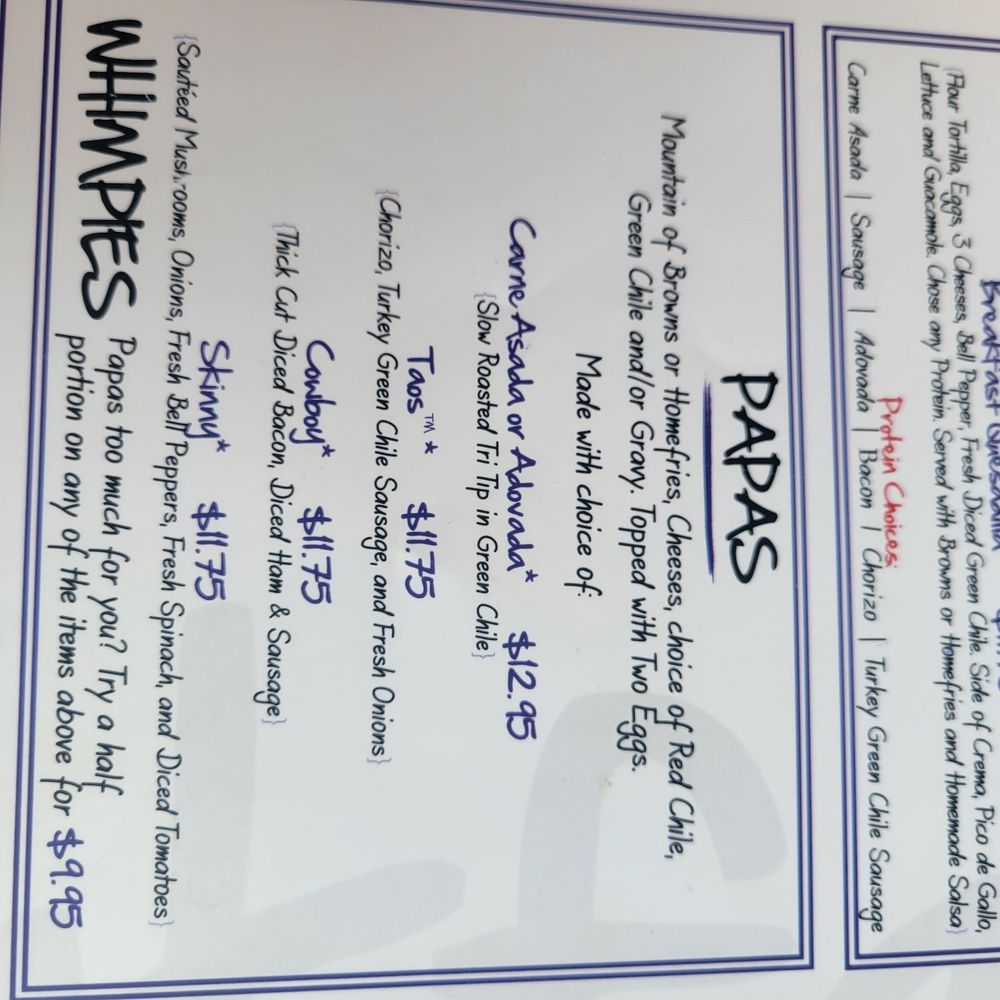 Breakfast Quesadilla
{Flour Tortilla, Eggs, 3 Cheeses, Bell Pepper, Fresh Diced Green Chile. Side of Crema, Pico de Gallo,
Lettuce and Guacamole. Chose any Protein. Served with Browns or Homefries and Homemade Salsa}
Protein Choices:
Carne Asada | Sausage | Adovada | Bacon | Chorizo | Turkey Green Chile Sausage
PAPAS
Mountain of Browns or Homefries, Cheeses, choice of Red Chile,
Green Chile and/or Gravy. Topped with Two Eggs.
Made with choice of:
Carne Asada or Adovada* $12.95
{Slow Roasted Tri Tip in Green Chile}
Taos™* $11.75
{Chorizo, Turkey Green Chile Sausage, and Fresh Onions}
Cowboy* $11.75
{Thick Cut Diced Bacon, Diced Ham & Sausage}
Skinny* $11.75
{Sautéed Mushrooms, Onions, Fresh Bell Peppers, Fresh Spinach, and Diced Tomatoes}
WHIMPIES Papas too much for you? Try a half
portion on any of the items above for $9.95